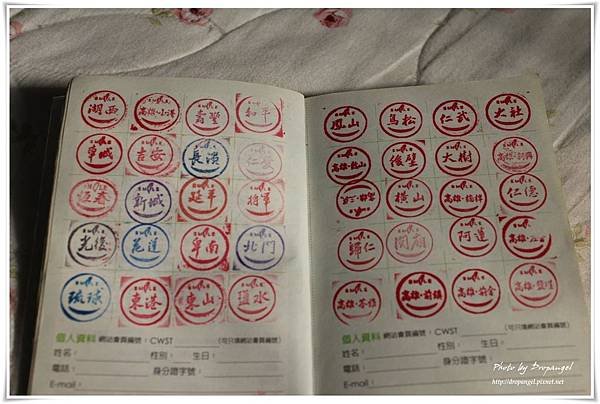 湖西 高雄·小港 壽豐 和平
車城 吉安 長濱
恆春 新城 延平 將軍
光復 花蓮 卑南 北門
琉球 東港 東山 鹽水
個人資料 網站會員編號：CWST （可只填網站會員編號）
姓名： 性別： 生日：
電話： 身分證字號：
E-mail：
鳳山 鳥松 仁武 大社
高雄·鼓山 後壁 大樹
橫山 高雄·楠梓 仁德
歸仁 關廟 阿蓮
高雄·苓雅 高雄·前鎮 高雄·前金 高雄·鹽埕
個人資料 網站會員編號：CWST （可只填網站會員編號）
姓名： 性別： 生日：
電話： 身分證字號：
E-mail：
Photo by Dropangel
http://dropangel.pixnet.net